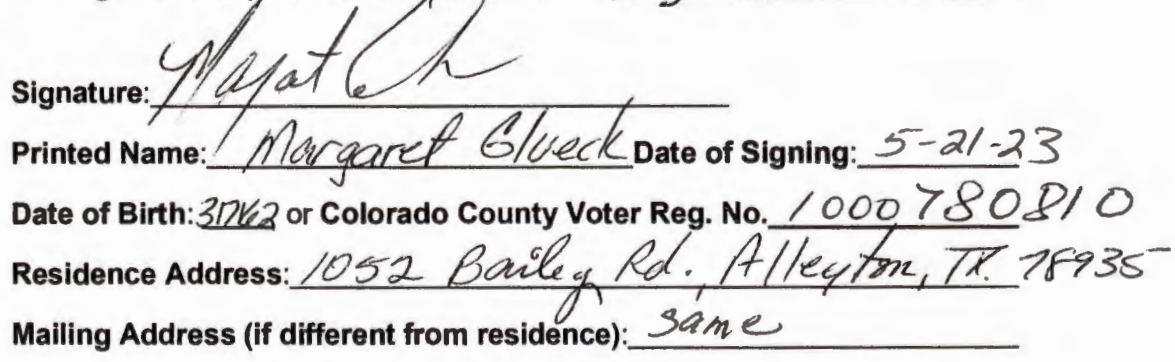 Signature:
Printed Name: Margaret Glueck Date of Signing: 5-21-23
Date of Birth: or Colorado County Voter Reg. No. 1000780810
Residence Address: 1052 Bailey Rd. , Alleyton, TX. 78935
Mailing Address (if different from residence): same